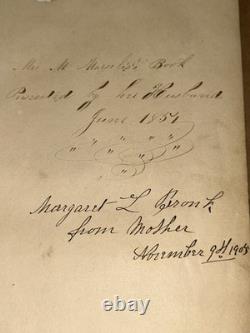 Mrs M Book
Presented by her Husband
June 1854
" " " "
" " "
Margaret L Bronk
from Mother
November 9th 1905
ebay